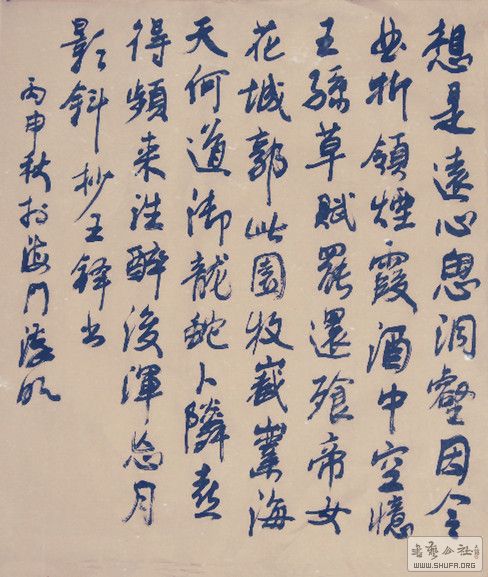 想是遠心思洞壑因令
曲折領煙霞酒中空憶
王孫草賦罷還飱帝女
花城郭此園收嶻嶪海
天何道御龍蛇卜隣喜
得頻来往醉後渾忘月
影斜抄王鐸书
丙申秋於海門
書藝公社
WWW.SHUFA.ORG